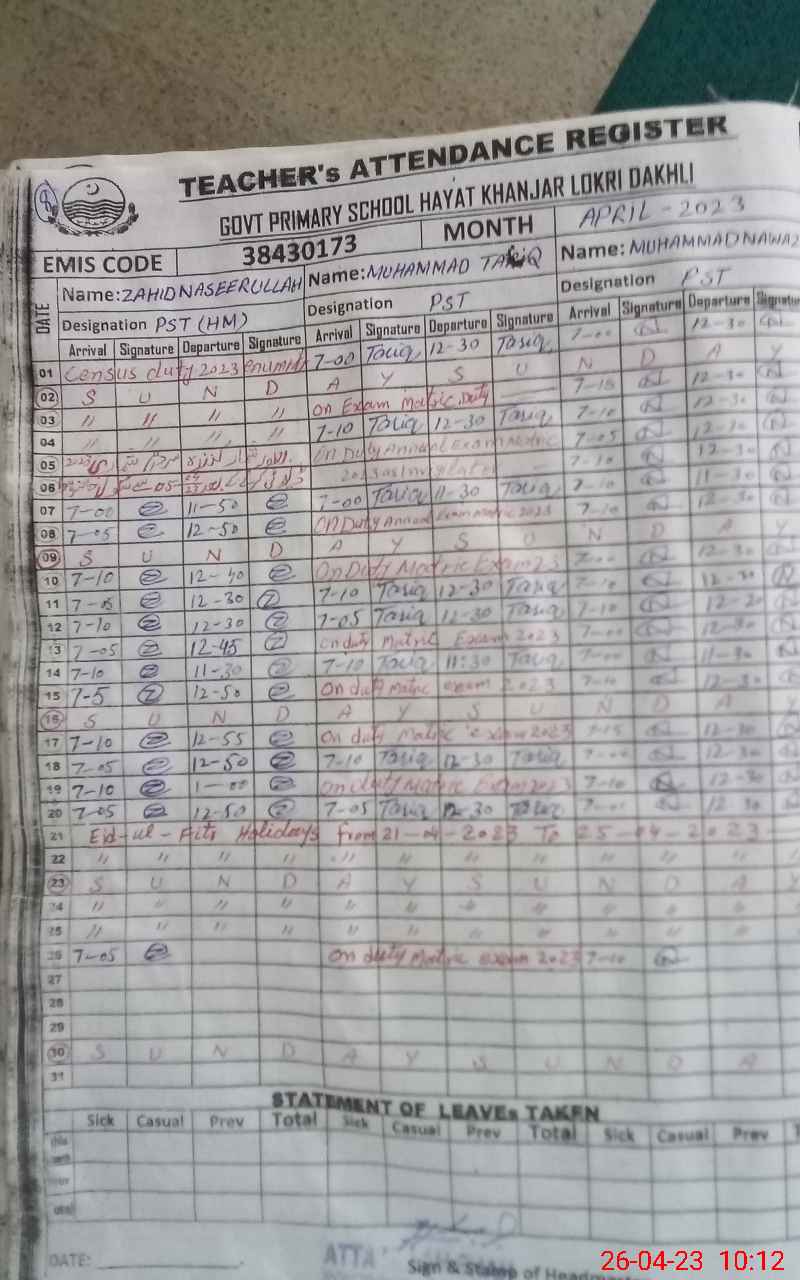 TEACHER's ATTENDANCE REGISTER
GOVT PRIMARY SCHOOL HAYAT KHANJAR LOKRI DAKHLI
EMIS CODE 38430173 MONTH APRIL - 2023
DATE Name: ZAHID NASEERULLAH Name: MUHAMMAD TARIQ Name: MUHAMMAD NAWAZ
Designation PST (HM) Designation PST Designation PST
Arrival Signature Departure Signature Arrival Signature Departure Signature Arrival Signature Departure Signatu
01 Census duty 2023 7-00 Tariq 12-30 Tariq 7-00 12-30
02 S U N D A Y S U N D A Y
03 " " " " on Exam Matric Duty 7-15 12-30
04 " " " " 7-10 Tariq 12-30 Tariq 7-10 12-30
05 On Duty Annual Exam Matric 7-05 12-30
06 2023 7-10 12-30
07 7-00 11-50 7-00 Tariq 11-30 Tariq 7-10 11-30
08 7-05 12-50 On Duty Annual Exam Matric 2023 7-10 12-30
09 S U N D A Y S U N D A Y
10 7-10 12-40 On Duty Matric Exam 23 7-00 12-30
11 7-05 12-30 7-10 Tariq 12-30 Tariq 7-10 12-30
12 7-10 12-30 7-05 Tariq 12-30 Tariq 7-10
13 7-05 12-45 on duty Matric Exam 2023 7-00 12-30
14 7-10 11-30 7-10 Tariq 11:30 Tariq 7-00 11-30
15 7-5 12-50 On duty Matric exam 2023 7-10 12-30
16 S U N D A Y S U N D A Y
17 7-10 12-55 On duty Matric exam 2023 7-15 12-30
18 7-05 12-50 7-10 Tariq 12-30 Tariq 12-30
19 7-10 1-00 On duty Matric Exam 2023 7-10 12-30
20 7-05 12-50 7-05 Tariq 12-30 Tariq 12-30
21 Eid-ul-Fitr Holidays from 21-04-2023 To 25-04-2023
22 " " " " " " " " " " " "
23 S U N D A Y S U N D A Y
24 " " " " " " " " " " " "
25 " " " " " " " " " " " "
26 7-05 On duty Matric exam 2023 7-10
27
28
29
30 S U N D A Y S U N D A
31
STATEMENT OF LEAVEs TAKEN
Sick Casual Prev Total Sick Casual Prev Total Sick Casual Prev T
DATE:
ATTA
Sign & Stamp of Headm
26-04-23 10:12